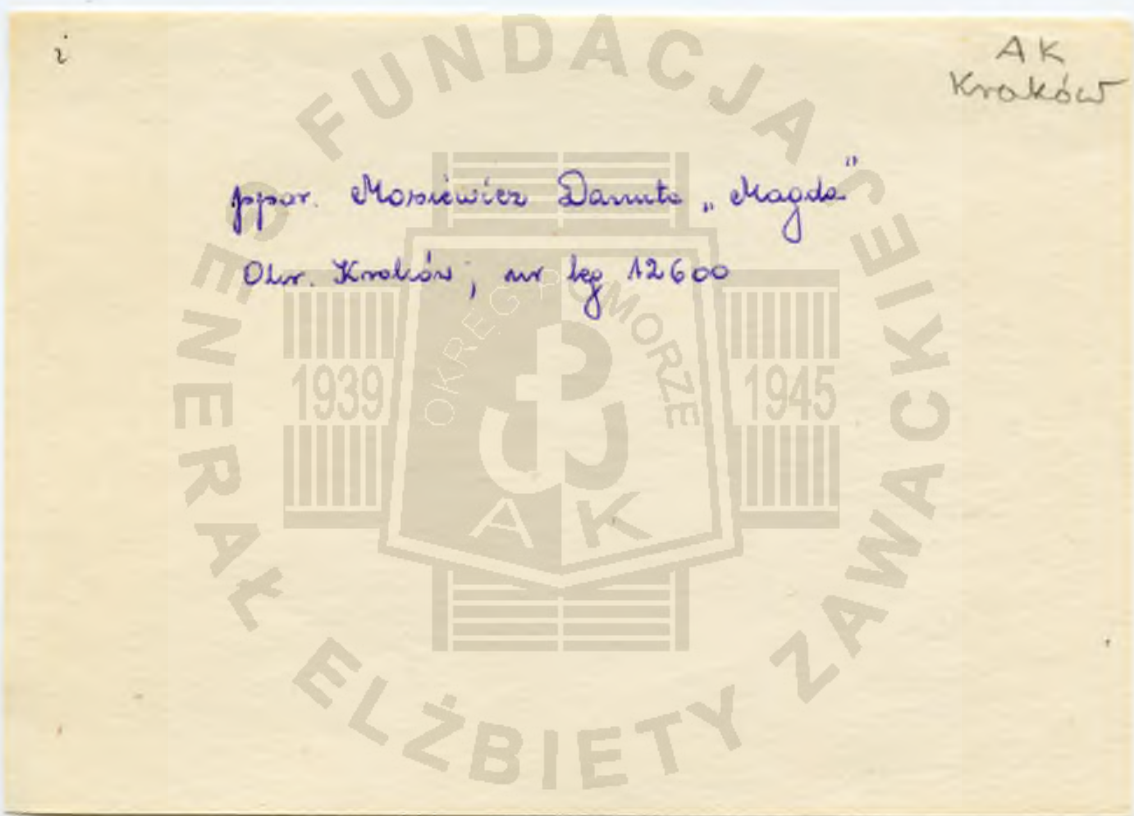 i
AK
Kraków
ppor. Mosiewicz Danuta „Magda”
Okr. Kraków; nr leg 12600
FUNDACJA
GENERAŁ ELŻBIETY ZAWACKIEJ
OKRĘG POMORZE
1939
1945
AK